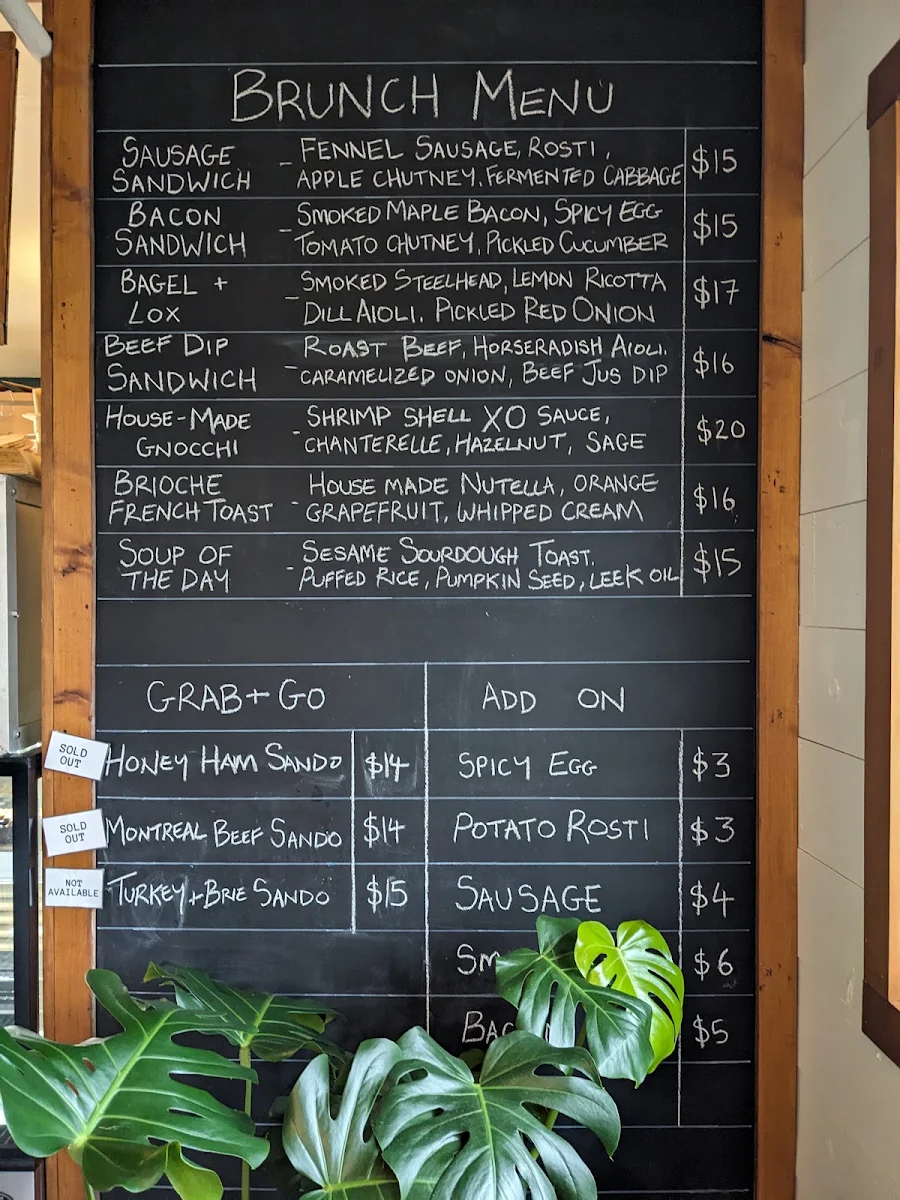 BRUNCH MENU
SAUSAGE SANDWICH - FENNEL SAUSAGE, ROSTI, $15
APPLE CHUTNEY. FERMENTED CABBAGE
BACON SANDWICH - SMOKED MAPLE BACON, SPICY EGG $15
TOMATO CHUTNEY, PICKLED CUCUMBER
BAGEL + LOX - SMOKED STEELHEAD, LEMON RICOTTA $17
DILL AIOLI. PICKLED RED ONION
BEEF DIP SANDWICH - ROAST BEEF, HORSERADISH AIOLI. $16
CARAMELIZED ONION, BEEF JUS DIP
HOUSE-MADE GNOCCHI - SHRIMP SHELL XO SAUCE, $20
CHANTERELLE, HAZELNUT, SAGE
BRIOCHE FRENCH TOAST - HOUSE MADE NUTELLA, ORANGE $16
GRAPEFRUIT, WHIPPED CREAM
SOUP OF THE DAY - SESAME SOURDOUGH TOAST. $15
PUFFED RICE, PUMPKIN SEED, LEEK OIL
GRAB + GO
SOLD OUT HONEY HAM SANDO $14
SOLD OUT MONTREAL BEEF SANDO $14
NOT AVAILABLE TURKEY + BRIE SANDO $15
ADD ON
SPICY EGG $3
POTATO ROSTI $3
SAUSAGE $4
$6
$5